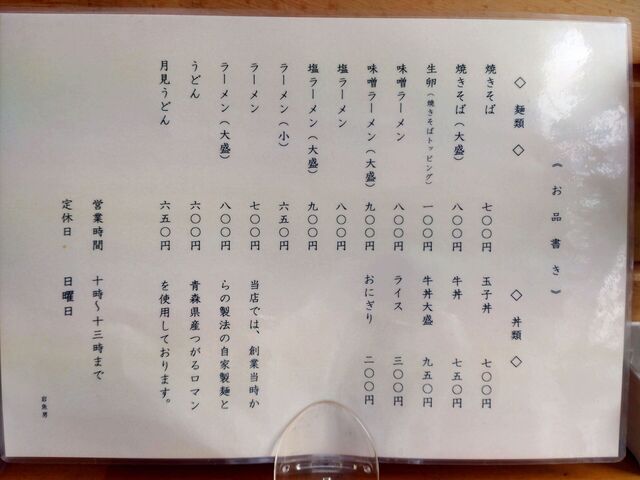 《お品書き》
◇ 麺類 ◇
焼きそば 七〇〇円
焼きそば(大盛) 八〇〇円
生卵(焼きそばトッピング) 一〇〇円
味噌ラーメン 八〇〇円
味噌ラーメン(大盛) 九〇〇円
塩ラーメン 八〇〇円
塩ラーメン(大盛) 九〇〇円
ラーメン(小) 六五〇円
ラーメン 七〇〇円
ラーメン(大盛) 八〇〇円
うどん 六〇〇円
月見うどん 六五〇円
◇ 丼類 ◇
玉子丼 七〇〇円
牛丼 七五〇円
牛丼大盛 九五〇円
ライス 三〇〇円
おにぎり 二〇〇円
当店では、創業当時か
らの製法の自家製麺と
青森県産つがるロマン
を使用しております。
営業時間 十時〜十三時まで
定休日 日曜日